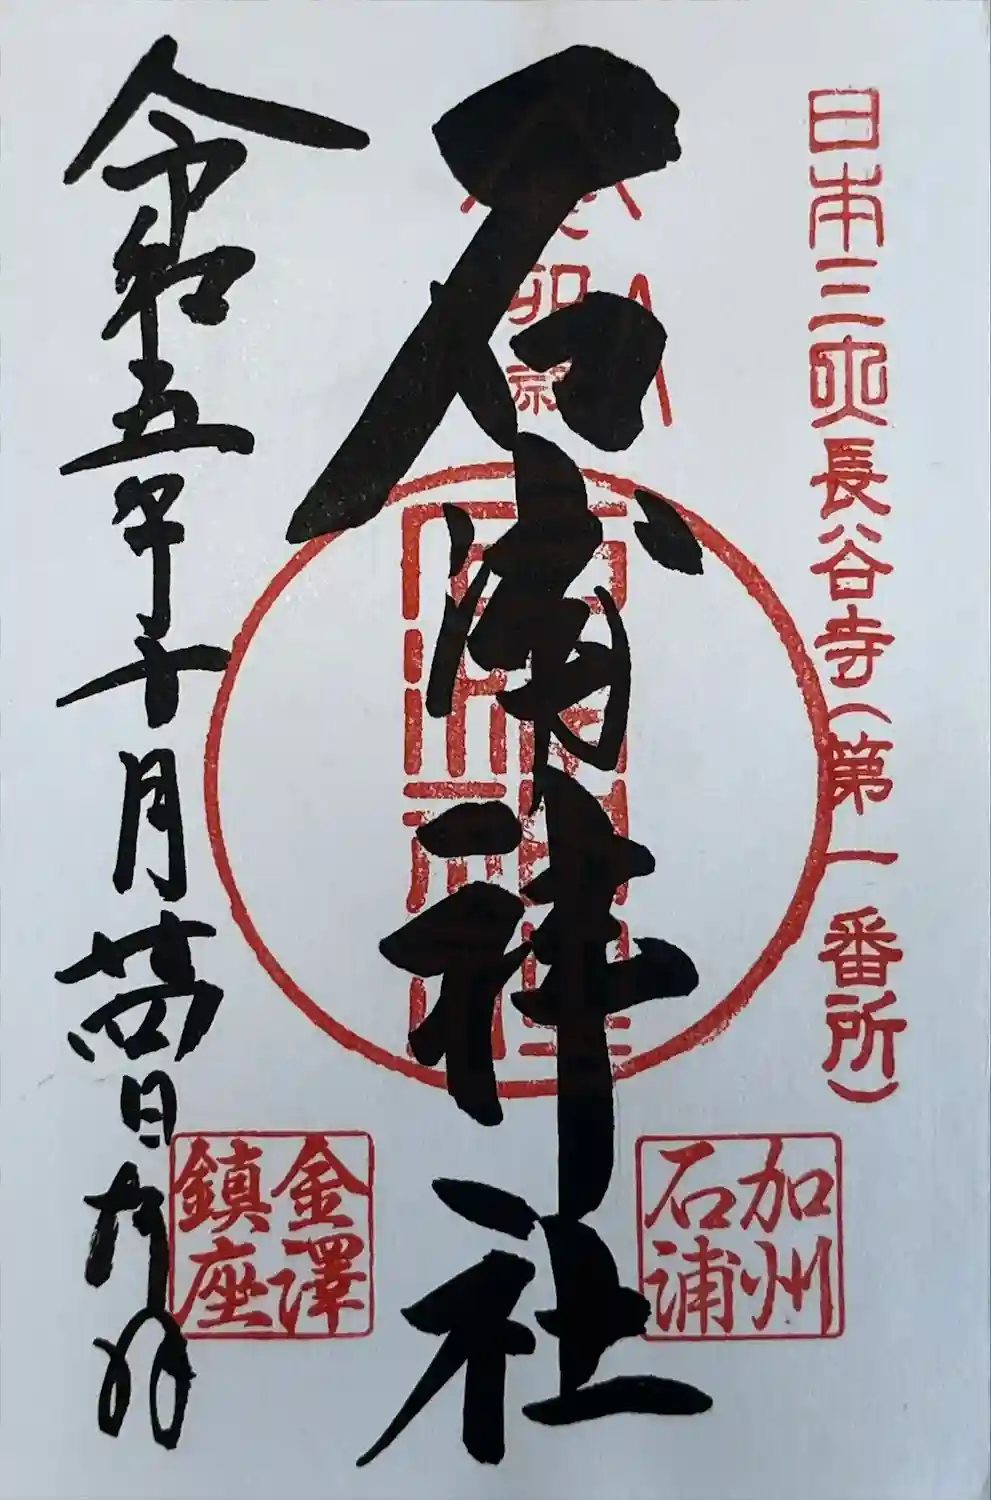 日本三
長谷寺(第一番所)
石浦神社
卯
加州
石浦
金澤
鎮座
令和五年十月廿四日